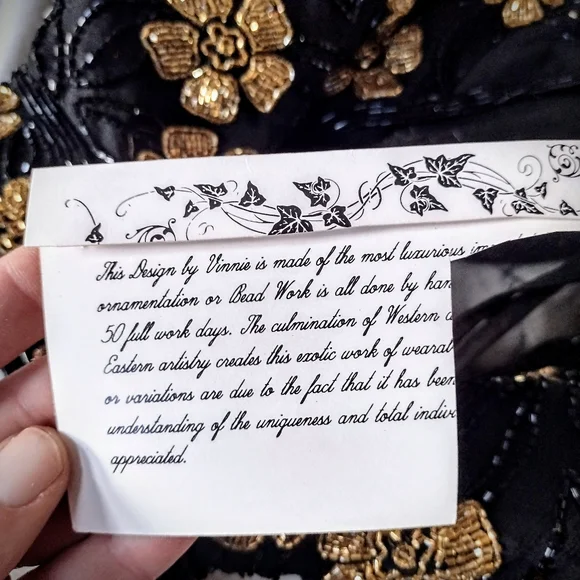 This Design by Vinnie is made of the most luxurious
ornamentation or Bead Work is all done by han
50 full work days. The culmination of Western
Eastern artistry creates this exotic work of wearab
or variations are due to the fact that it has been
understanding of the uniqueness and total indiv
appreciated.